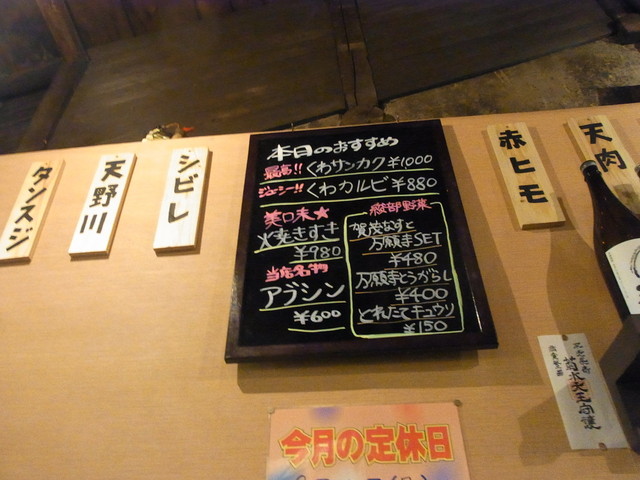 タンスジ
天野川
シビレ
本日のおすすめ
最高!! くわサンカク ¥1000
ジューシー!! くわカルビ ¥880
美味★
火焼きすき
¥980
当店名物
アブシン
¥600
綾部野菜
賀茂なすと
万願寺SET
¥480
万願寺とうがらし
¥400
とれたてキュウリ
¥150
赤ヒモ
天肉
今月の定休日